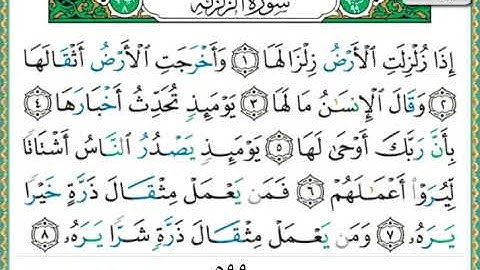 سورة الزلزلة
إِذَا زُلْزِلَتِ ٱلْأَرْضُ زِلْزَالَهَا ١ وَأَخْرَجَتِ ٱلْأَرْضُ أَثْقَالَهَا
٢ وَقَالَ ٱلْإِنسَٰنُ مَا لَهَا ٣ يَوْمَئِذٍ تُحَدِّثُ أَخْبَارَهَا ٤
بِأَنَّ رَبَّكَ أَوْحَىٰ لَهَا ٥ يَوْمَئِذٍ يَصْدُرُ ٱلنَّاسُ أَشْتَاتًا
لِّيُرَوْا۟ أَعْمَٰلَهُمْ ٦ فَمَن يَعْمَلْ مِثْقَالَ ذَرَّةٍ خَيْرًا
يَرَهُۥ ٧ وَمَن يَعْمَلْ مِثْقَالَ ذَرَّةٍ شَرًّا يَرَهُۥ ٨
٥٩٩